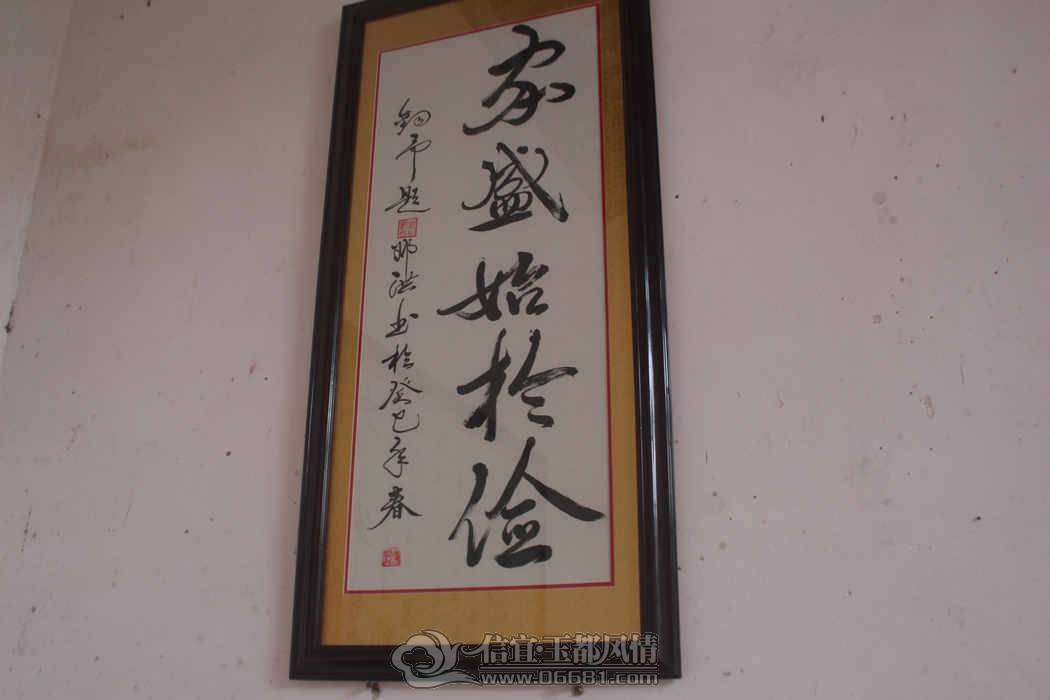 家盛始於儉
題
洪書於癸巳年春
信宜·玉都风情
www.06681.com